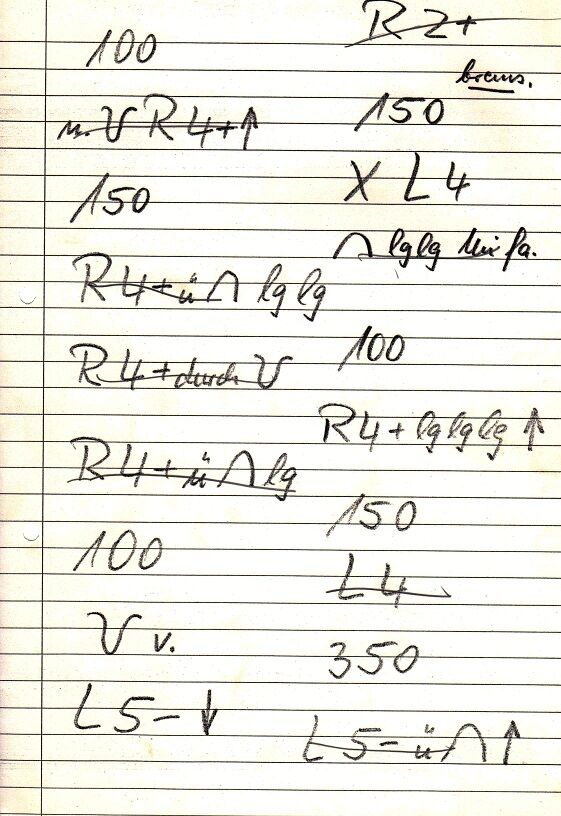 100
u. V R 4+ ↑
150
R 4+ ü ∩ lg lg
R 4+ durch V
R 4+ ü ∩ lg
100
V v.
L 5- ↓
R 2+
brems.
150
X L 4
∩ lg lg
100
R 4+ lg lg lg ↑
150
L 4
350
L 5- ü ∩ ↑